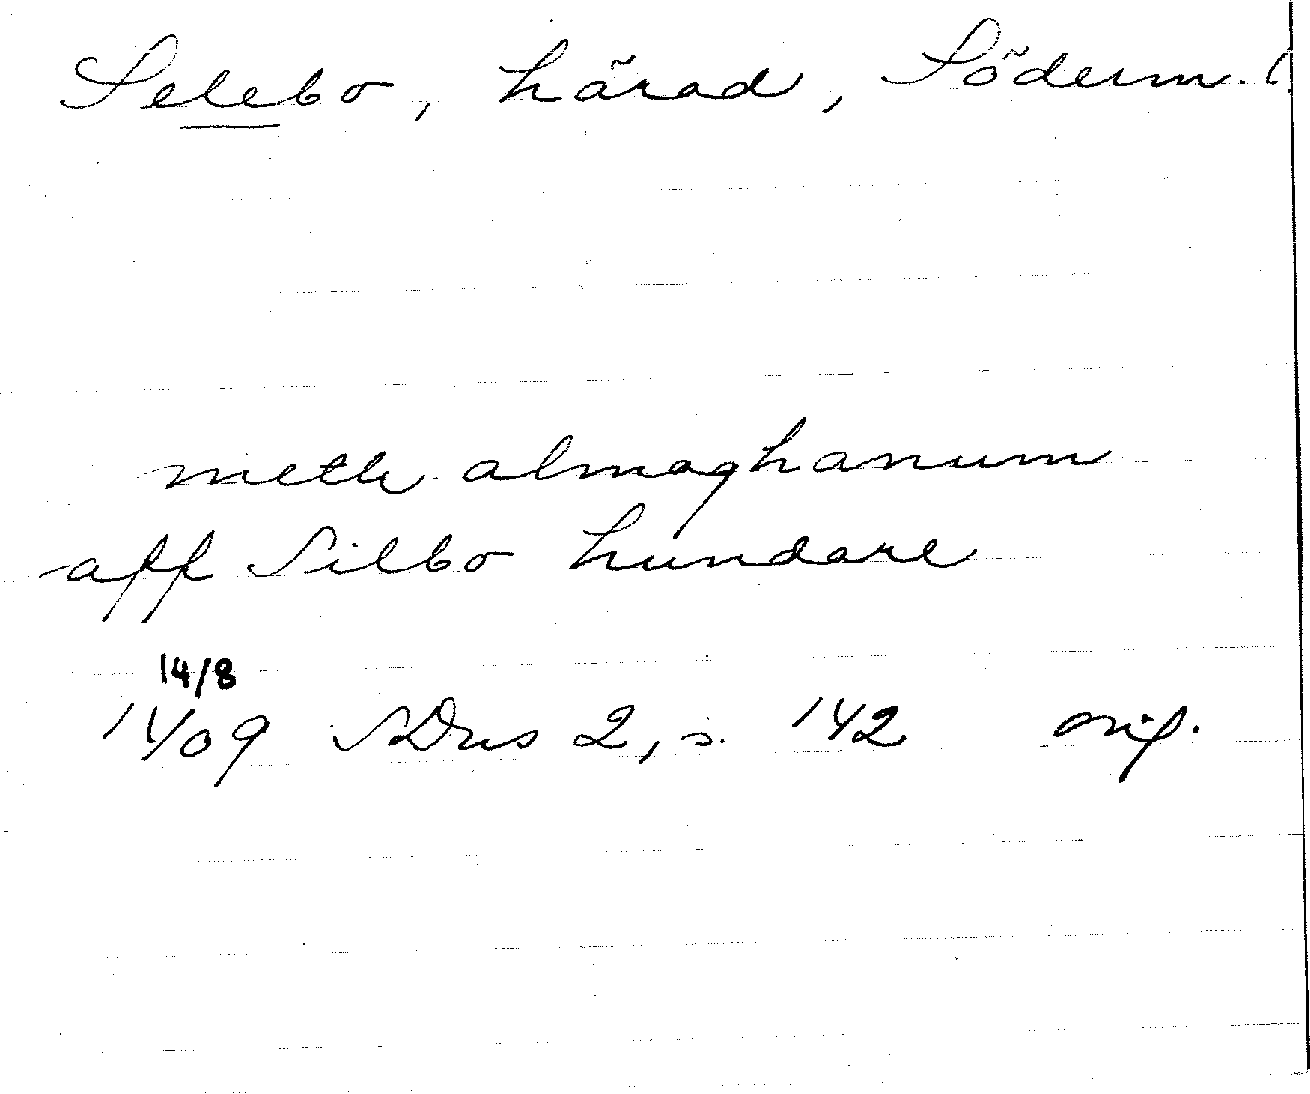 Selebo, härad, Söderm. l
meth almoghanum
aff Silbo hundare
14/8
1409 SDns 2, s. 142 orig.